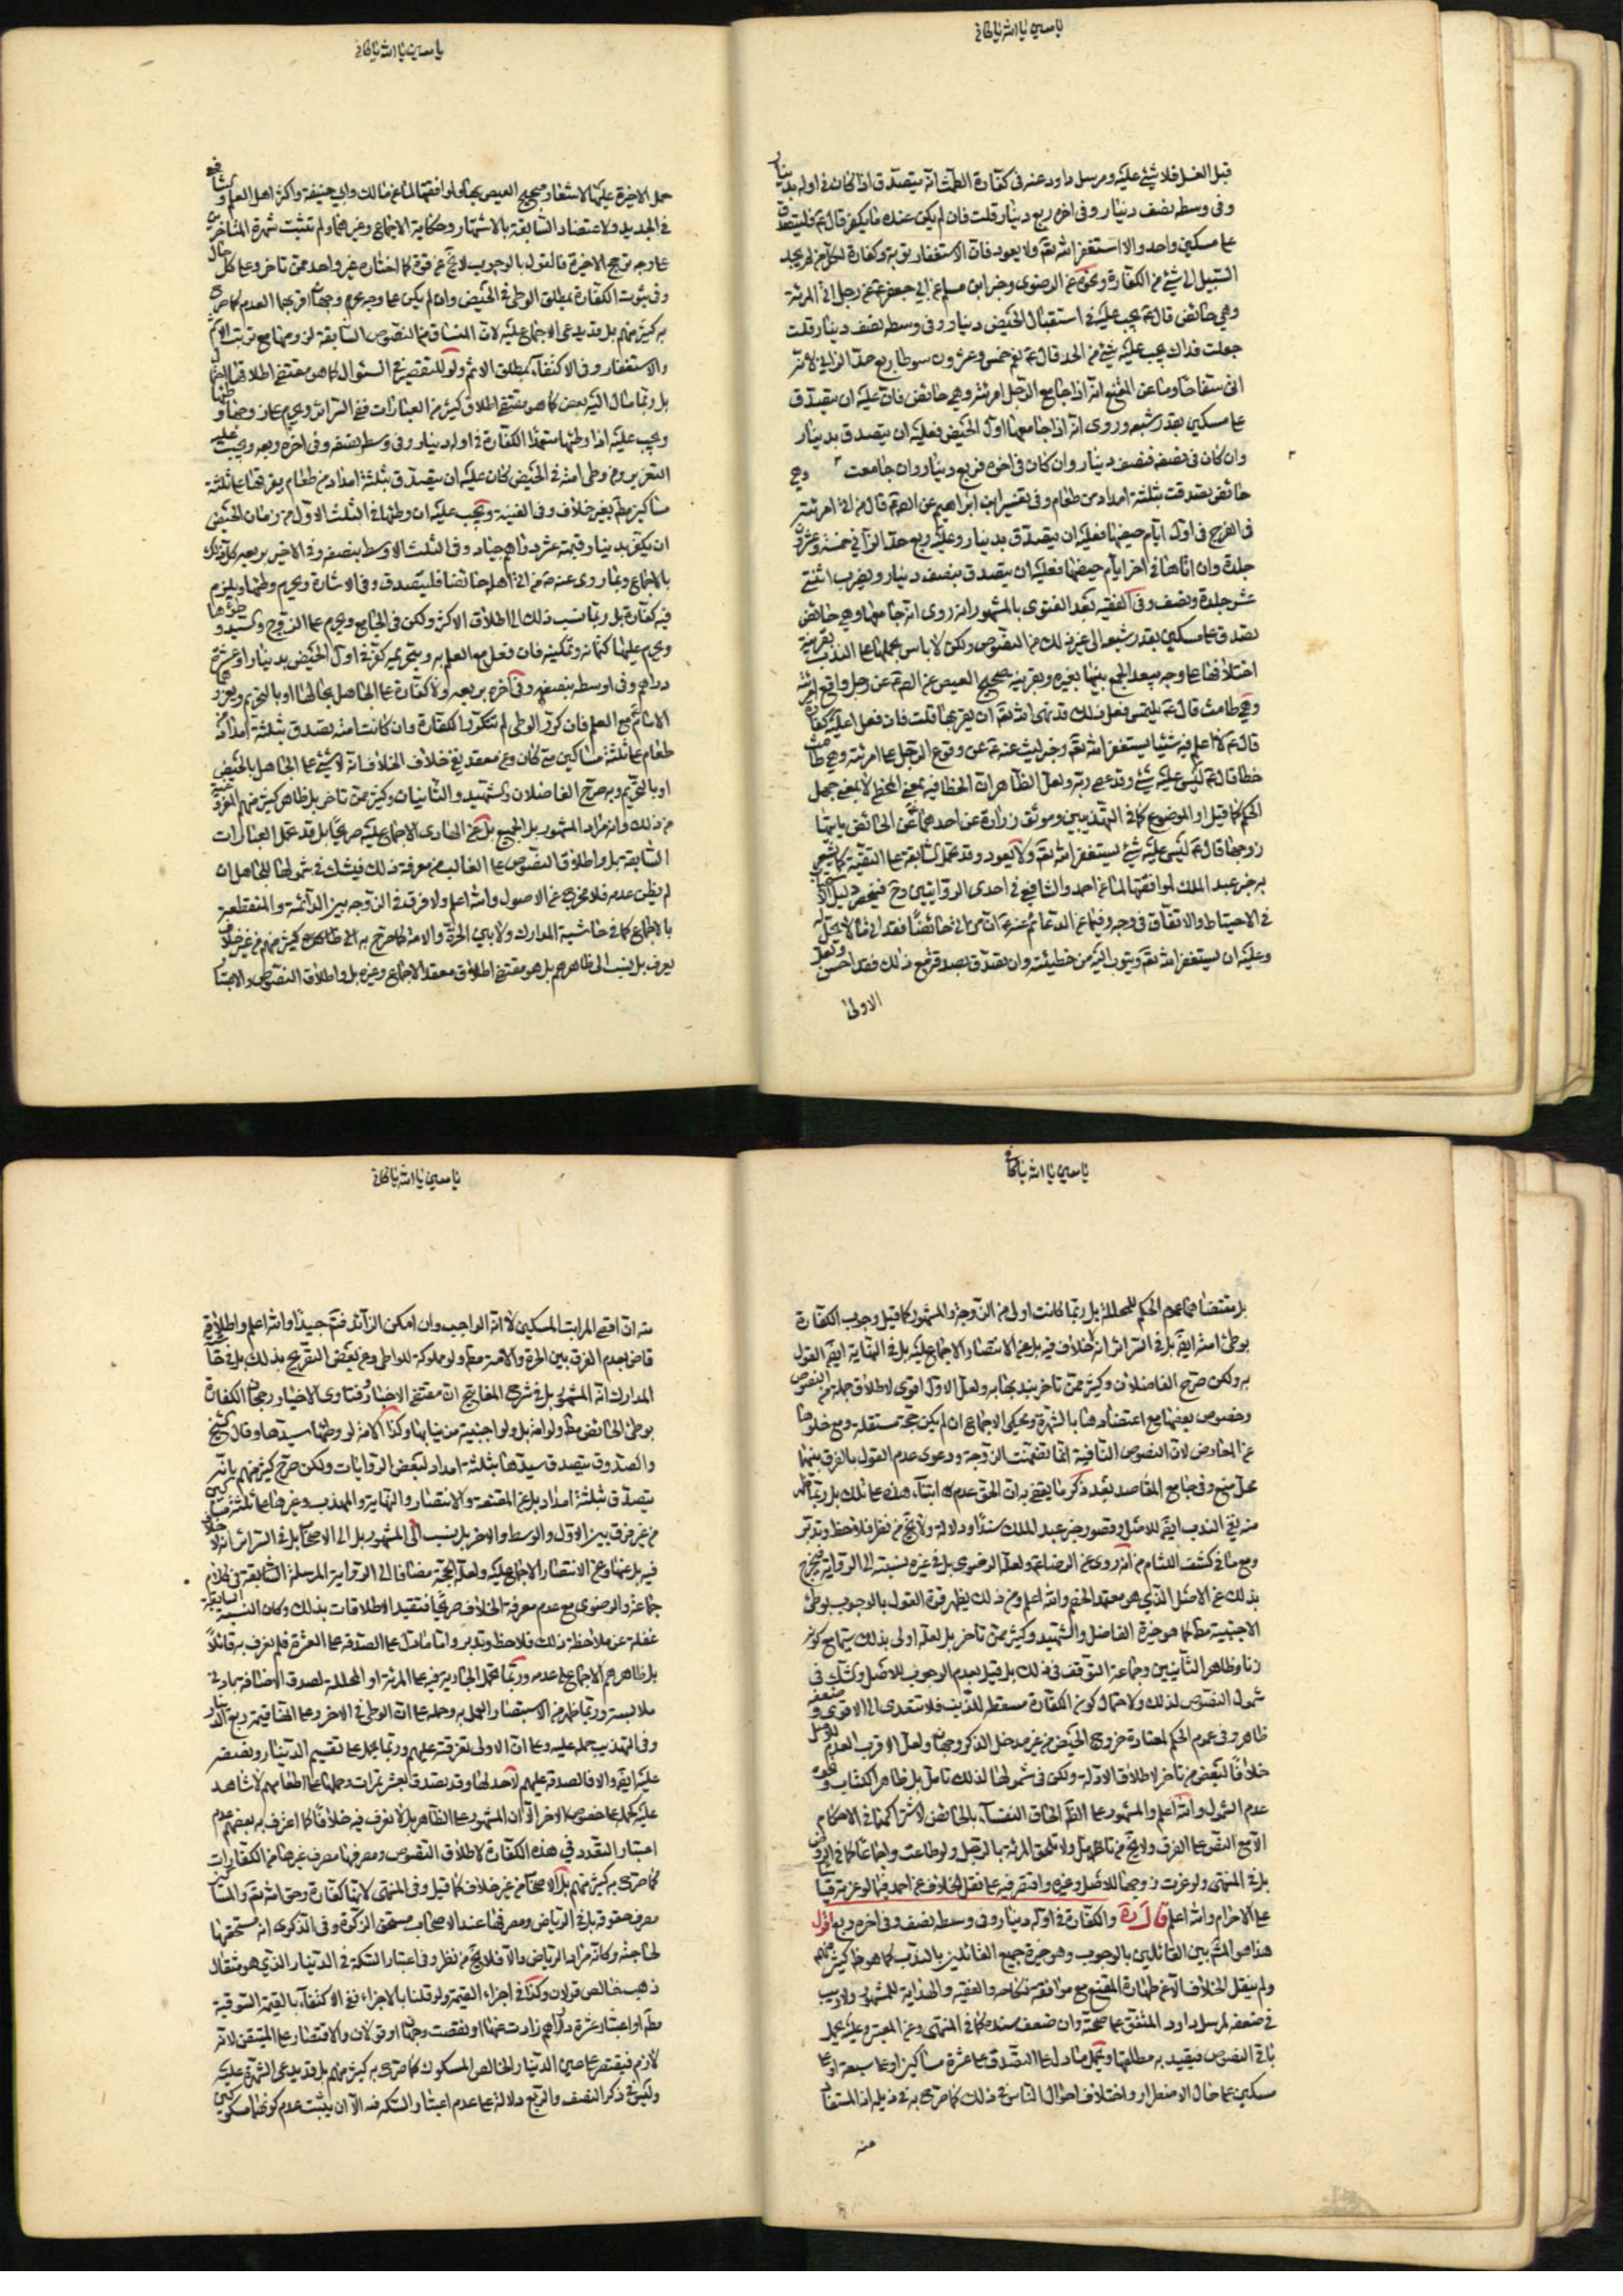 يا مبين يا الله يا كافي
قبل الغسل فلا شئ عليه ومرسل داود عنه في كفارة الطمث انه يتصدق اذا كان في اوله بدينار
وفي وسطه نصف دينار وفي اخره ربع دينار قلت فان لم يكن عنده ما يكفر قال ع فليتصدق
على مسكين واحد والا استغفر الله تعه ولا يعود فان الاستغفار توبة وكفارة لكل من لم يجد
السبيل الى شئ من الكفارة ونحوه عن الرضوي وخبر ابن مسلم عن ابي جعفر ع عن رجل اتى المرئة
وهي حائض قال ع يجب عليه في استقبال الحيض دينار وفي وسطه نصف دينار قلت
جعلت فداك يجب عليه شئ من الحد قال ع نعم خمس وعشرون سوطا ربع حد الزاني لانه
اتى سفاحا وما عن المقنع انه اذا جامع الرجل امرئته وهي حائض فان عليه ان يتصدق
على مسكين بقدر شبعه وروى انه اذا جامعها اول الحيض فعليه ان يتصدق بدينار
وان كان في نصفه فنصف دينار وان كان في اخره فربع دينار وان جامعت وهي
حائض تصدقت بثلثة امداد من طعام وفي تفسير ابن ابراهيم عن الصم قال من اتى امرئته
في الفرج في اول ايام حيضها فعليه ان يتصدق بدينار وعليه ربع حد الزاني خمسة وعشرون
جلدة وان اتاها في اخر ايام حيضها فعليه ان يتصدق بنصف دينار ويضرب اثنتي
عشر جلدة ونصف وفي الفقيه بعد الفتوى بالمشهور انه روى انه جامعها وهي حائض
تصدق على مسكين بقدر شبعه الى غير ذلك من النصوص ولكن لا باس بحملها على الندب بقرينة
اختلافها على وجه يبعد الجمع بينها بغيره وبقرينة صحيح العيص عن الصم عن رجل واقع امرئته
وهي طامث قال ع لا يلتمس فعل ذلك قد نهى الله تعه ان يقربها قلت فان فعل اعليه كفارة
قال ع لا اعلم فيه شيئا يستغفر الله تعه وخبر ليث عنه ع عن وقوع الرجل على امرئته وهي طامث
خطا قال ع ليس عليه شئ وقد عصى ربه ولعل الظاهر ان الخطا فيه بمعنى الخطئ لا بمعنى جهل
الحكم كما قيل او الموضوع كما في التهذيبين وموثق زرارة عن احدهما ع عن الحائض ياتيها
زوجها قال ع ليس عليه شئ يستغفر الله تعه ولا يعود وقد تحمل السابقة على التقية كما يشعر
به خبر عبد الملك لموافقتها لما عن احمد والشافعي في احدى الروايتين
في الاحتياط والاتفاق في وجه وفيما عن الدعائم عنه ع ان من اتى حائضا فقد اتى ما لا يحل له
وعليه ان يستغفر الله تعه ويتوب اليه من خطيئته وان تصدق بصدقة مع ذلك فقد احسن ولعل
الاولى
يا مبين يا الله يا كافي
حمل الاخيرة عليها لاشعار صحيح العيص بها ولموافقتها لما عن مالك وابي حنيفة واكثر اهل العلم والشافعي
في الجديد ولاعتضاد السابقة بالاشتهار وحكاية الاجماع وغيرهما ولم تثبت شهرة المتاخرين
على وجه ترجح الاخيرة فالقول بالوجوب لا يخ عن قوة كما اختاره غير واحد ممن تاخر وعلى كل حال
وفي ثبوت الكفارة بمطلق الوطئ في الحيض وان لم يكن على وجه محرم وجهان اقربهما العدم كما صرح
به كثير منهم بل قد يدعى الاجماع عليه لان المنساق من النصوص السابقة لزومها مع ترتب الاثم
والاستغفار وفي الاكتفاء بمطلق الاثم ولو للتقصير في السئوال كما هو مقتضى اطلاق
بل ربما مال اليه بعض كما هو مقتضى اطلاق كثير من العبارات ففي السرائر ويحرم على زوجها وطئها
ويجب عليه اذا وطئها متعمدا الكفارة في اوله دينار وفي وسطه نصفه وفي اخره ربعه ويجب عليه
التعزير ومن وطئ امته في الحيض كان عليه ان يتصدق بثلثة امداد من طعام يفرقها على ثلثة
مساكين مط بغير خلاف وفي الغنية ويجب عليه ان وطئها في الثلث الاول من زمان الحيض
ان يكفر بدينار قيمته عشر دراهم جياد وفي الثلث الاوسط بنصفه وفي الاخير بربعه كل ذلك
بالاجماع وبما روى عنه ص من اتى اهله حائضا فليتصدق وفي الاشارة ويحرم وطئها ويلزم
فيه كفارة بل ربما نسب ذلك الى اطلاق الاكثر ولكن في الجامع ويحرم على الزوج والسيد وطئها
ويحرم عليها كتمانه وتمكينه فان فعل مع العلم به وبتحريمه كفر في اول الحيض بدينار او عشرة
دراهم وفي اوسطه بنصفه وفي اخره بربعه ولا كفارة على الجاهل بحالها او بالتحريم ويعزر
الاثم مع العلم فان كرر الوطئ لم تتكرر الكفارة وان كانت امته تصدق بثلثة امداد من
طعام على ثلثة مساكين متى كان وعن معقد نفي خلاف الخلاف انه لا شئ على الجاهل بالحيض
او بالتحريم وبه صرح الفاضلان والشهيد والثانيان وكثير ممن تاخر بل ظاهر كثير منهم
من ذلك وانه مراد المشهور بل الجميع بل عن الحدائق الاجماع عليه صريحا بل قد تحمل العبارات
السابقة بل واطلاق النصوص على الغالب من معرفة ذلك فيشك في شمولها للجاهل ان
لم يظن عدمه فلا مخرج عن الاصول والله اعلم ولا فرق في الزوجة بين الدائمة والمنقطعة
بالاجماع كما في حاشية المدارك ولا بين الحرة والامة كما صرح به كثير منهم من غير خلاف
يعرف بل ينسب الى ظاهرهم بل هو مقتضى اطلاق معقد الاجماع وغيره بل واطلاق النصوص
يا مبين يا الله يا كافي
بل مقتضاهما عموم الحكم للمحللة بل ربما كانت اولى من الزوجة والمشهور كما قيل وجوب الكفارة
بوطئ امته ايضا بل في السرائر انه لا خلاف فيه بل عن الانتصار الاجماع عليه بل في النهاية ايضا القول
به ولكن صرح الفاضلان وكثير ممن تاخر بندبها به ولعل الاول اقوى لاطلاق جملة من النصوص
وخصوص بعضها مع اعتضادها بالشهرة ومحكى الاجماع ان لم يكن حجة مستقلة ومع خلوها
عن المعارض لان النصوص النافية انما تضمنت الزوجة ودعوى عدم القول بالفرق بينهما
محل منع وفي جامع المقاصد بعد ذكر ما يقضى به ان الحق عدم ابتناء هذه على تلك بل ربما يظهر
منه نفي الندب ايضا للاصل وقصور خبر عبد الملك سندا ودلالة ولا يخ من نظر فلاحظ وتدبر
ومع ما في كشف اللثام من انه روى عن الرضا ع ولعله الرضوى بل في غيره نسبته الى الرواية فيخرج
بذلك عن الاصل الذي هو معتمد الخصم والله اعلم ومن ذلك يظهر قوة القول بالوجوب بوطئ
الاجنبية مط كما هو خيرة الفاضل والشهيد وكثير ممن تاخر بل لعله اولى بذلك سيما مع كونه
زنا وظاهر الثانيين وجماعة التوقف في ذلك بل قيل بعدم الوجوب للاصل والشك في
شمول النصوص لذلك ولاحتمال كون الكفارة مسقطة للذنب فلا تتعدى الى الاقوى وضعفه
ظاهر وفي عموم الحكم لمعتادة خروج الحيض من غير مدخل الذكر وجهان ولعل الاقرب العدم للاصل
خلافا لبعض من تاخر لاطلاق الادلة ولكن في شمولها لذلك تامل بل ظاهر الكتاب وغيره
عدم الشمول والله اعلم والمشهور على الظ الحاق النفساء بالحائض لاشتراكهما في الاحكام
الا مع النص على الفرق ولا يخ من تامل ولا تلحق المرئة بالرجل ولو طاوعت واجماعا كما في الروض
بل في المنتهى ولو غرت زوجها للاصل وغيره واقتصر فيه على نقل الخلاف عن احمد فيما لو غرته قياسا
على الاحرام والله اعلم قال ره والكفارة في اوله دينار وفي وسطه نصف وفي اخره ربع اقول
هذا هو المشم بين القائلين بالوجوب وهو خيرة جميع القائلين بالندب كما هو ظ كثير منهم
ولم ينقل الخلاف الا عن طهارة المقنع مع موافقة نكاحه والفقيه والهداية للمشهور ولا ريب
في ضعفه لمرسل داود المتفق على صحته وان ضعف سنده كما في المنتهى وعن المعتبر وعليه عمل
باقي النصوص فيقيد به مطلقها ويحمل ما دل على التصدق على عشرة مساكين او على سبعة او على
مسكين على حال الاضطرار واختلاف احوال الناس في ذلك كما صرح به في ذيله اذ المستفاد
منه
يا مبين يا الله يا كافي
منه ان اقصى المراتب المسكين لا انه الواجب وان امكن الزائد فتم جيدا والله اعلم واطلاق
قاض بعدم الفرق بين الحرة والامة مط ولو مملوكة للواطى وعن بعض التصريح بذلك بل في حاشية
المدارك انه المشهور بل في شرح المفاتيح ان مقتضى الاخبار وفتاوى الاخيار رجحان الكفارة
بوطئ الحائض مط ولو امة بل ولو اجنبية من نيابها وكذا الامة لو وطئها سيدها وقال الشيخ
والصدوق يتصدق سيدها بثلثة امداد لبعض الروايات ولكن صرح كثير منهم بانه
يتصدق بثلثة امداد بل عن المقنعة والانتصار والنهاية والمهذب وغيرها على ثلثة مساكين
من غير فرق بين الاول والوسط والاخر بل ينسب الى المشهور بل الى الاصحاب بل في السرائر انه لا خلاف
فيه بل عنها وعن الانتصار الاجماع عليه ولعله الحجة مضافا الى الرواية المرسلة السابقة في كلام
جماعة والرضوى مع عدم معرفة الخلاف صريحا فتقيد الاطلاقات بذلك وكان النسبة السابقة
غفلة عن ملاحظة ذلك فلاحظ وتدبر واما ما دل على الصدقة على العشرة فلم نعرف به قائلا
بل ظاهرهم الاجماع على عدمه وربما تحمل الجارية فيه على المرئة او المحللة لصدق الاضافة بادنى
ملابسة وربما ظهر من الاستبصار العمل به وحمله على ان الوطئ في الاخر وعلى انها قيمة ربع الدينار
وفي التهذيب حمله عليه وعلى ان الاولى تفرقته عليهم وربما يحمل على تقسيم الدينار ونصفه
عليه ايضا والا فالصدقة عليهم لا حد لها وقد تصدق بعشر تمرات وحملها على اطعامهم لا شاهد
عليه كحمله على خصوص الاخر الا ان المشهور على الظاهر بل لا نعرف فيه خلافا كما اعترف به بعضهم عدم
اعتبار التعدد في هذه الكفارة لاطلاق النصوص ومصرفها مصرف غيرها من الكفارات
كما صرح به كثير منهم بل الاصحاب من غير خلاف كما قيل وفي المنتهى لانها كفارة وحق الله تعه والمساكين
مصرف حقوقه بل في الرياض ومصرفها عند الاصحاب مستحق الزكوة وفي الذكرى انه مستحقها
لحاجته وكانه مراد الرياض والا فلا يخ من نظر وفي اعتبار السكة في الدينار الذي هو مثقال
ذهب خالص قولان وكذا في اجزاء القيمة ولو قلنا بالاجزاء ففي الاكتفاء بالقيمة السوقية
مط او اعتبار عشرة دراهم زادت عنها او نقصت وجهان او قولان والاقتصار على المتيقن لانه
لازم فيقتصر على عين الدينار الخالص المسكوك كما صرح به كثير منهم بل قد يدعى الشهرة عليه
وليس في ذكر النصف والربع دلالة على عدم اعتبار السكة فيه الا ان يثبت عدم كونهما مسكوكين